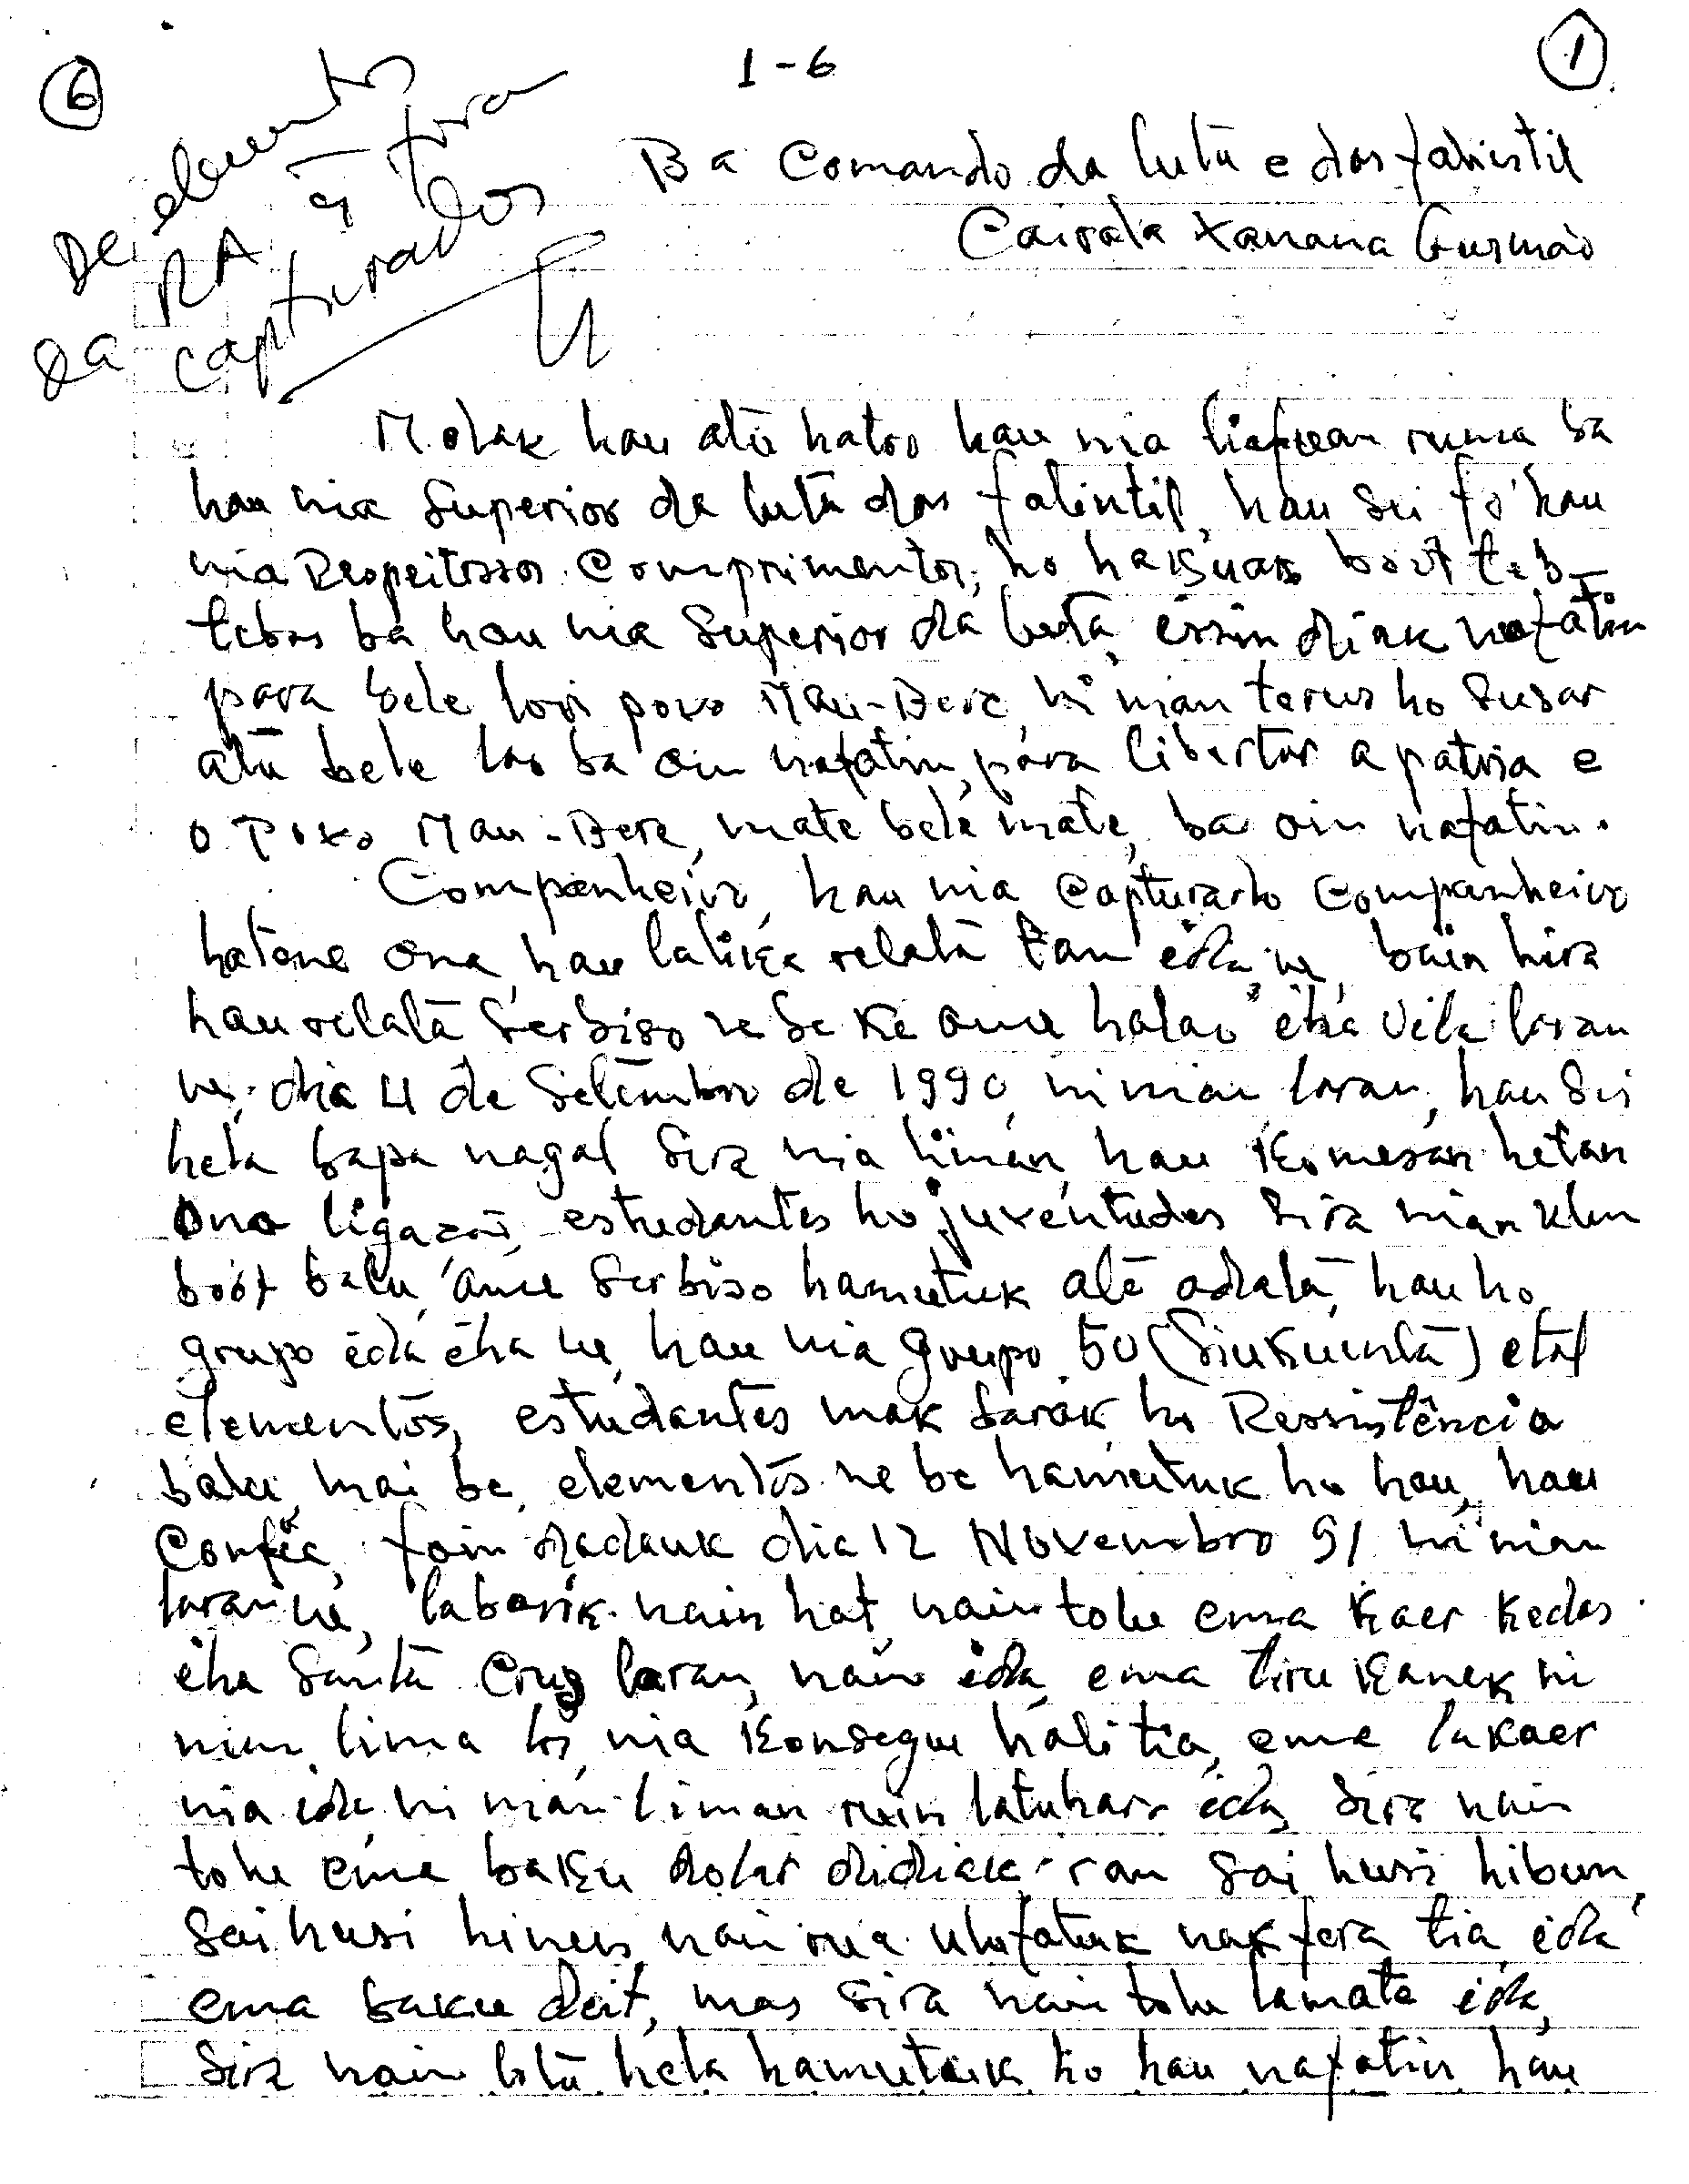 6
1-6
1
De elementos
da RA é fora
capturados
Ba Comando da luta e das falintil
Cairala Xanana Gusmão
Molak hau atu hatoo hau nia liafuan ruma ba
hau nia Superior da luta das falintil, hau sei fó hau
nia Respeitosos comprimentos, ho haksuak boot teb-
tebes ba hau nia Superior da luta, issin diak nafatin
para bele lori povo Mau-Bere ni nian terus ho susar
atu bele lao ba oin nafatin, para libertar a patria e
o Povo Mau-Bere, mate bele mate, ba oin nafatin.
Companheiro, hau nia capturado companheiro
hatene ona, hau lalika relata tan ida ne, bain hira
hau relata serbiso ne be ke ami halao iha vila laran
ne, dia 4 de Setembro de 1990 ni nian laran, hau sei
hela bapa nagal sira nia liman, hau komesan hetan
ona ligacão, estudantes ho juventudes sira nian klen
boot balu, ami serbiso hamutuk até adalā, hau ho
grupo ida iha ne, hau nia grupo 50 (Sinkuenta) etal
elementos, estudantes mak barak ho Ressistência
balu, mai be, elementos ne be hamutuk ho hau, hau
Confia, foin dadauk dia 12 Novembro 91 ni nian
laran ne, labarik nain hat, nain tolu ema kaer kedas
iha Santa Cruz laran, nain ida, ema tiru kanek ni
nian lima los, nia konsegue halitia, ema lakaer
nia ida, ni nian liman ruin latuhar ida, sira nain
tolu ema baku dohar didiak ran sai husi hibun,
sai husi hinus, nain rua ulufatuk nakfera tia, ida
ema baku deit, mas sira nain tolu lamate ida,
sira nain tolu hela hamutuk ho hau nafatin hau